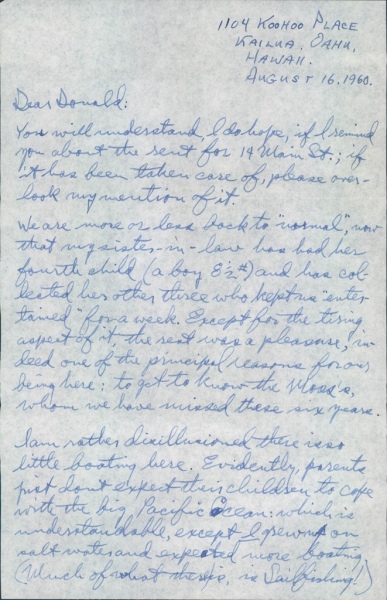 1104 KOOHOO PLACE
KAILUA, OAHU,
HAWAII.
AUGUST 16, 1960.
Dear Donald:
You will understand, I do hope, if I remind
you about the rent for 14 Main St.; if
it has been taken care of, please over-
look my mention of it.
We are more or less back to "normal", now
that my sister-in-law has had her
fourth child (a boy 8½#) and has col-
lected her other three who kept us "enter-
tained" for a week. Except for the tiring
aspect of it, the rest was a pleasure, in-
deed one of the principal reasons for our
being here: to get to know the Moss's,
whom we have missed these six years.
I am rather disillusioned there is so
little boating here. Evidently, parents
just don't expect their children to cope
with the big, Pacific Ocean: which is
understandable, except I grew up on
salt water and expected more boating
(Much of what there is, is Sailfishing!)